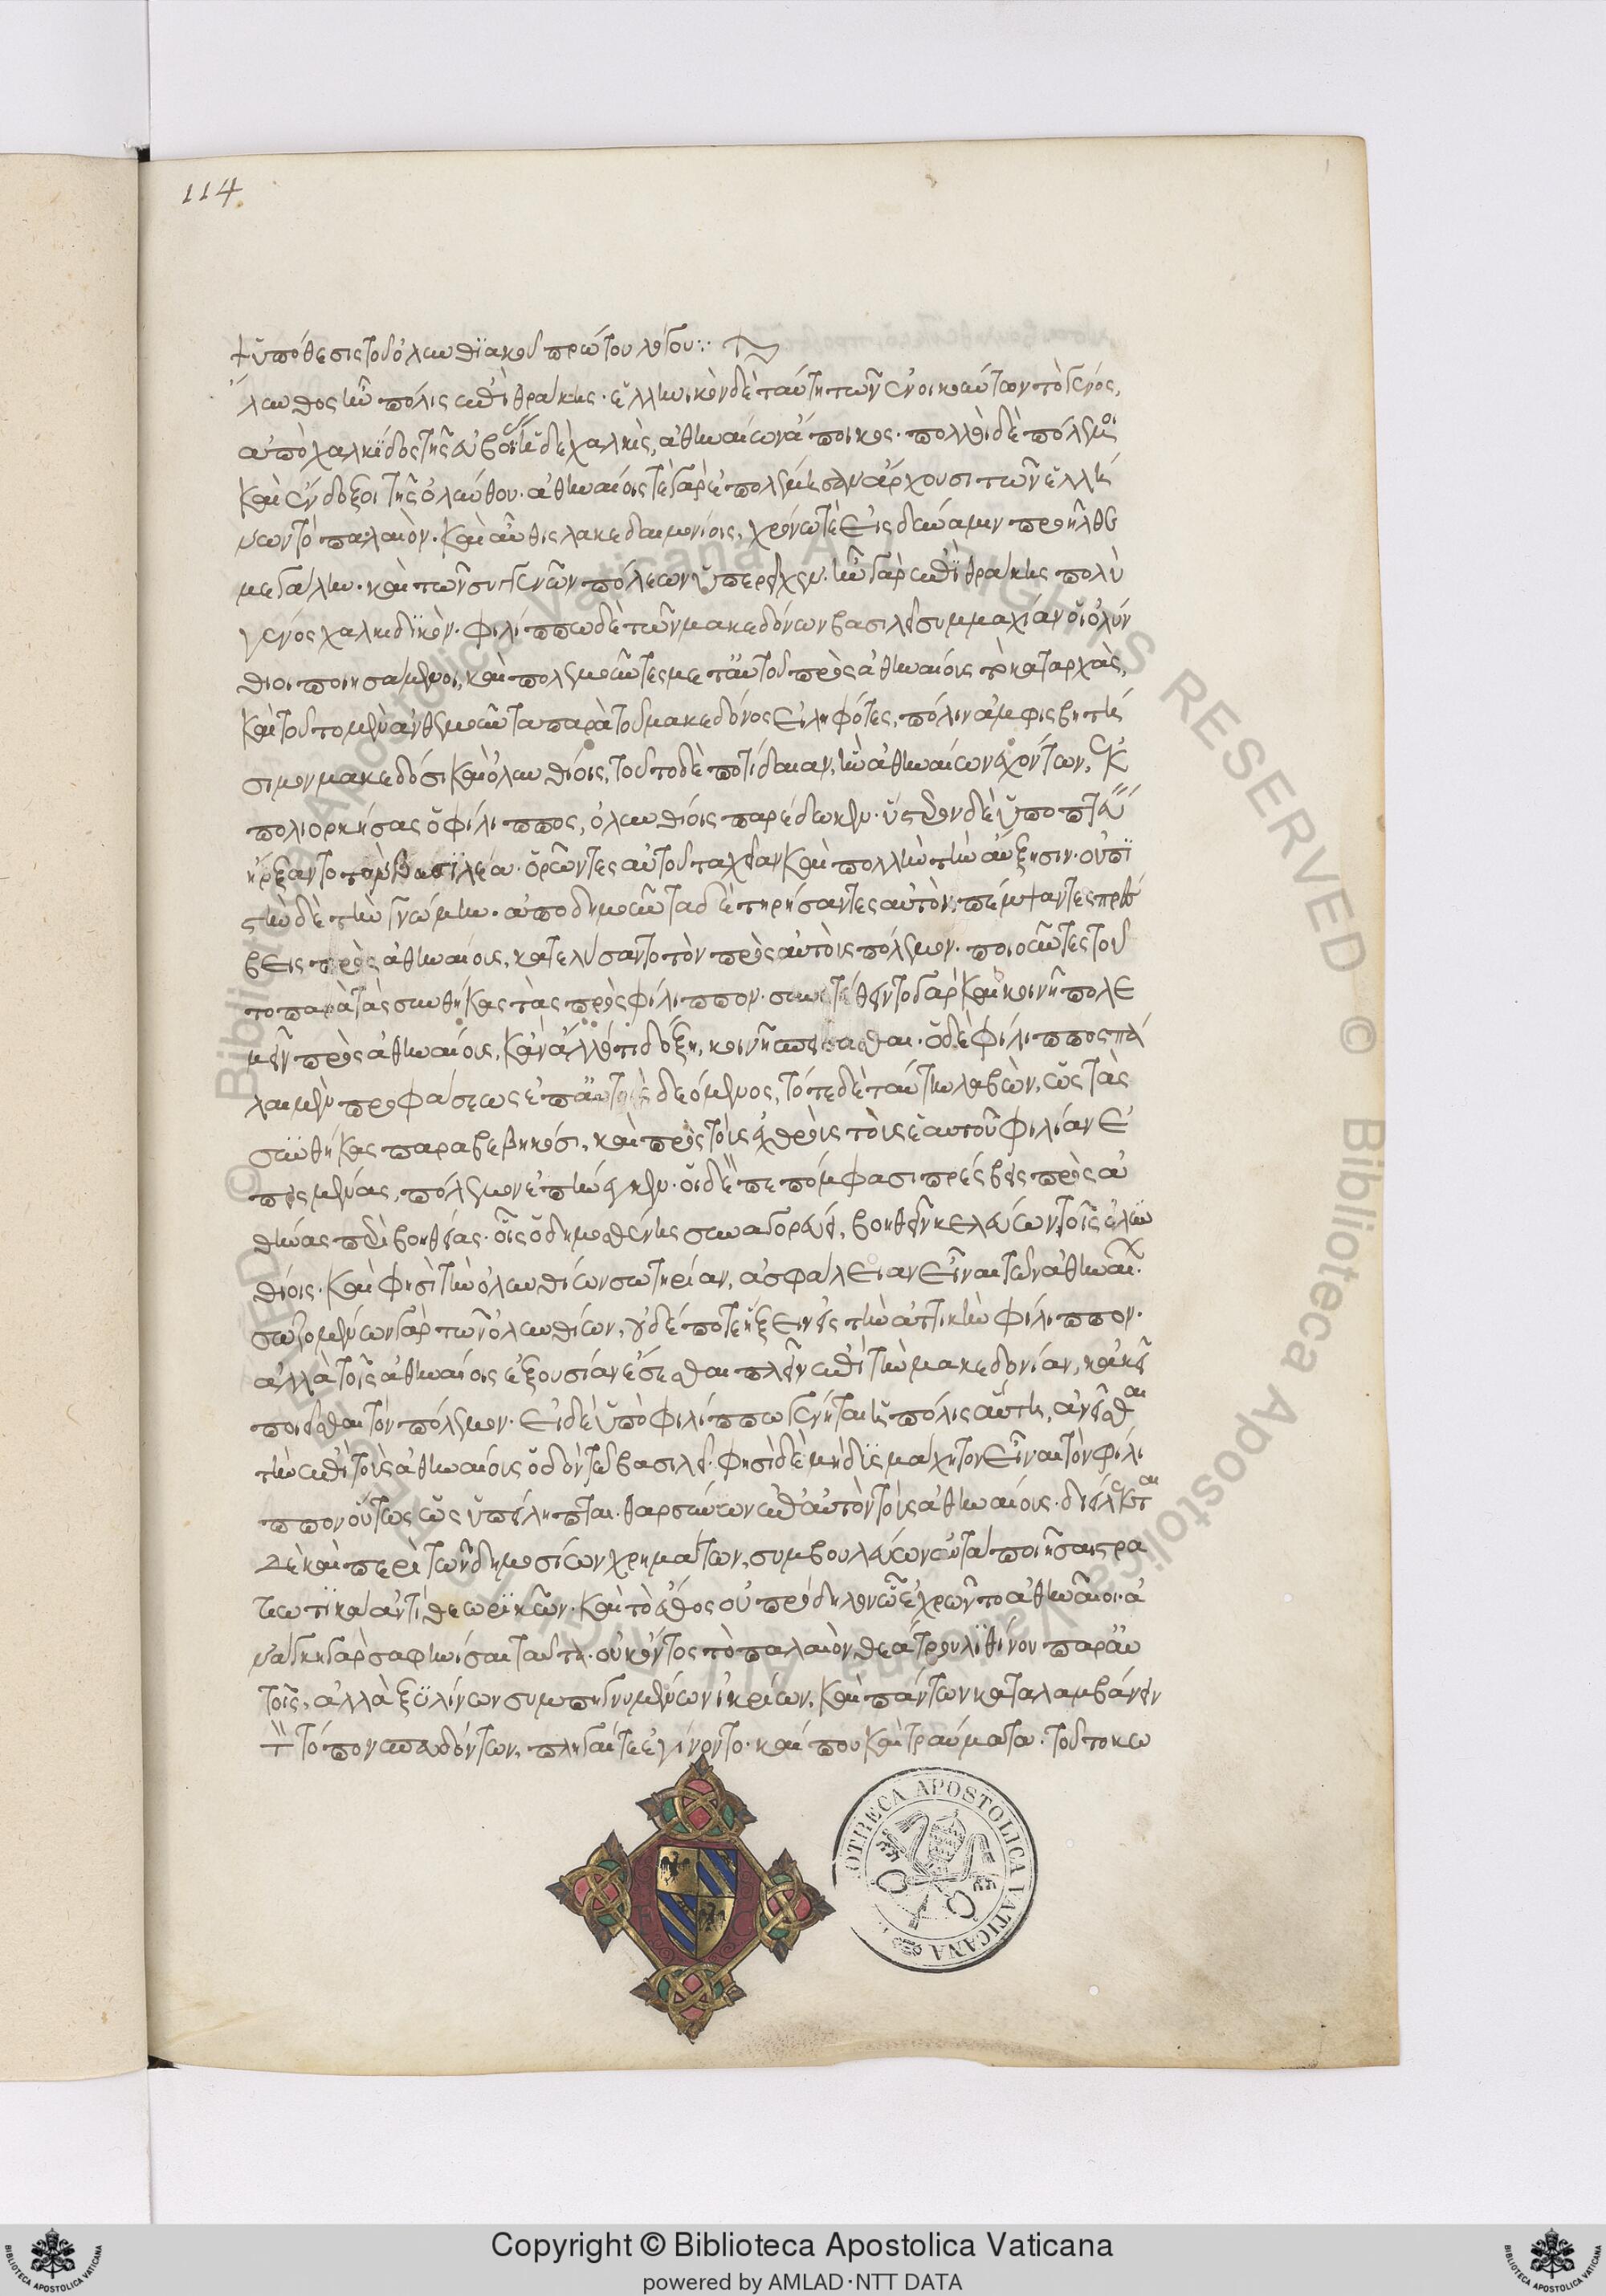 114
ὑπόθεσις τοῦ ὀλυνθιακοῦ πρώτου λόγου
λυνθος ἦν πόλις ἐπὶ θράκης· ἑλληνικὸν δὲ ταύτη τῶν ἐνοικούντων τὸ γένος,
ἀπὸ χαλκίδος τῆς ἐν εὐβοίᾳ· ἡ δὲ χαλκὶς, ἀθηναίων ἄποικος. πολλοὶ δὲ πόλεμοι
καὶ ἔνδοξοι τῆς ὀλύνθου. ἀθηναίοις τὲ γὰρ ἐπολέμησεν ἄρχουσι τῶν ἑλλή
νων τὸ παλαιόν. καὶ αὖθις λακεδαιμονίοις, χρόνω τὲ εἰς δύναμιν προῆλθε
μεγάλην. καὶ τῶν συγγενῶν πόλεων ὑπερεῖχεν. ἦν γὰρ ἐπὶ θράκης πολὺ
γένος χαλκιδικόν. φιλίππω δὲ τῶν μακεδόνων βασιλεῖ συμμαχίαν οἱ ὀλύν
θιοι ποιησάμενοι, καὶ πολεμοῦντες μετ' αὐτοῦ πρὸς ἀθηναίοις τὸ καταρχὰς,
καὶ τοῦτο μὲν ἀνθεμοῦντα παρὰ τοῦ μακεδόνος εἰληφότες, πόλιν ἀμφισβητή
σιμον μακεδόσι καὶ ὀλυνθίοις, τοῦτο δὲ ποτίδαιαν, ἣν ἀθηναίων ἐχόντων, ἐκ
πολιορκήσας ὁ φίλιππος, ὀλυνθίοις παρέδωκεν. ὕστερον δὲ ὑποπτεύ
ειν ἤρξαντο τὸν βασιλέα. ὁρῶντες αὐτοῦ ταχεῖαν καὶ πολλὴν τὴν αὔξησιν. οὐ πι
στὴν δὲ τὴν γνώμην. ἀποδημοῦντα δὲ τηρήσαντες αὐτὸν, πέμψαντες πρέσ
βεις πρὸς ἀθηναίοις, κατελύσαντο τὸν πρὸς αὐτοὺς πόλεμον. ποιοῦντες τοῦ
το παρὰ τὰς συνθήκας τὰς πρὸς φίλιππον. συνετέθειντο γὰρ καὶ κοινῆ πολε
μεῖν πρὸς ἀθηναίοις, κἂν ἄλλό τι δόξη, κοινῆ σπείσασθαι. ὁ δὲ φίλιππος πά
λαι μὲν προφάσεως ἐπ' αὐτοὺς δεόμενος, τότε δὲ ταύτην λαβὼν, ὡς τὰς
συνθήκας παραβεβηκόσι, καὶ πρὸς τοὺς ἐχθροὺς τοὺς ἑαυτοῦ φιλίαν ἐ
σπεισμένοις, πόλεμον ἐπήνεγκεν. οἱ δὲ πεπόμφασι πρέσβεις πρὸς ἀ
θήνας περὶ βοηθείας. οἷς ὁ δημοσθένης συναγορεύει, βοηθεῖν κελεύων τοῖς ὀλυν
θίοις. καὶ φησὶ τὴν ὀλυνθίων σωτηρίαν, ἀσφάλειαν εἶναι τῶν ἀθηναίων.
σωζομένων γὰρ τῶν ὀλυνθίων, οὐδέποτε ἥξειν εἰς τὴν ἀττικὴν φίλιππον.
ἀλλὰ τοῖς ἀθηναίοις ἐξουσίαν ἔσεσθαι πλεῖν ἐπὶ τὴν μακεδονίαν, κἀκεῖ
ποιεῖσθαι τὸν πόλεμον. εἰ δὲ ὑπὸ φιλίππω γένηται ἡ πόλις αὕτη, ἀνεῖσθαι
τὴν ἐπὶ τοὺς ἀθηναίοις ὁδὸν τῷ βασιλεῖ. φησὶ δὲ μὴ δύσμαχητον εἶναι τὸν φίλι
ππον οὕτως ὡς ὑπείληπται. θαρσύνων ἐπ' αὐτὸν τοὺς ἀθηναίοις. διείλεκται
δὲ καὶ περὶ τῶν δημοσίων χρημάτων, συμβουλεύων αὐτὰ ποιῆσαι στρα
τιωτικὰ ἀντὶ θεωρικῶν. καὶ τὸ ἔθος οὐ πρόδηλον ὧ ἐχρῶντο ἀθηναῖοι. ἀ
νάγκη γὰρ σαφηνίσαι ταῦτα. οὐκ ὄντος τὸ παλαιὸν θεάτρου λιθίνου παρ' αὐ
τοῖς, ἀλλὰ ξυλίνων συμπηγνυμένων ἰκρίων, καὶ πάντων καταλαμβάνειν
τόπον σπευδόντων, πληγαί τε ἐγίνοντο. καί που καὶ τραύματα. τοῦτο κω
OTHECA APOSTOLICA VATICANA
© Biblioteca Apostolica Vaticana ALL RIGHTS RESERVED
Copyright © Biblioteca Apostolica Vaticana
powered by AMLAD·NTT DATA
BIBLIOTECA APOSTOLICA VATICANA
BIBLIOTECA APOSTOLICA VATICANA